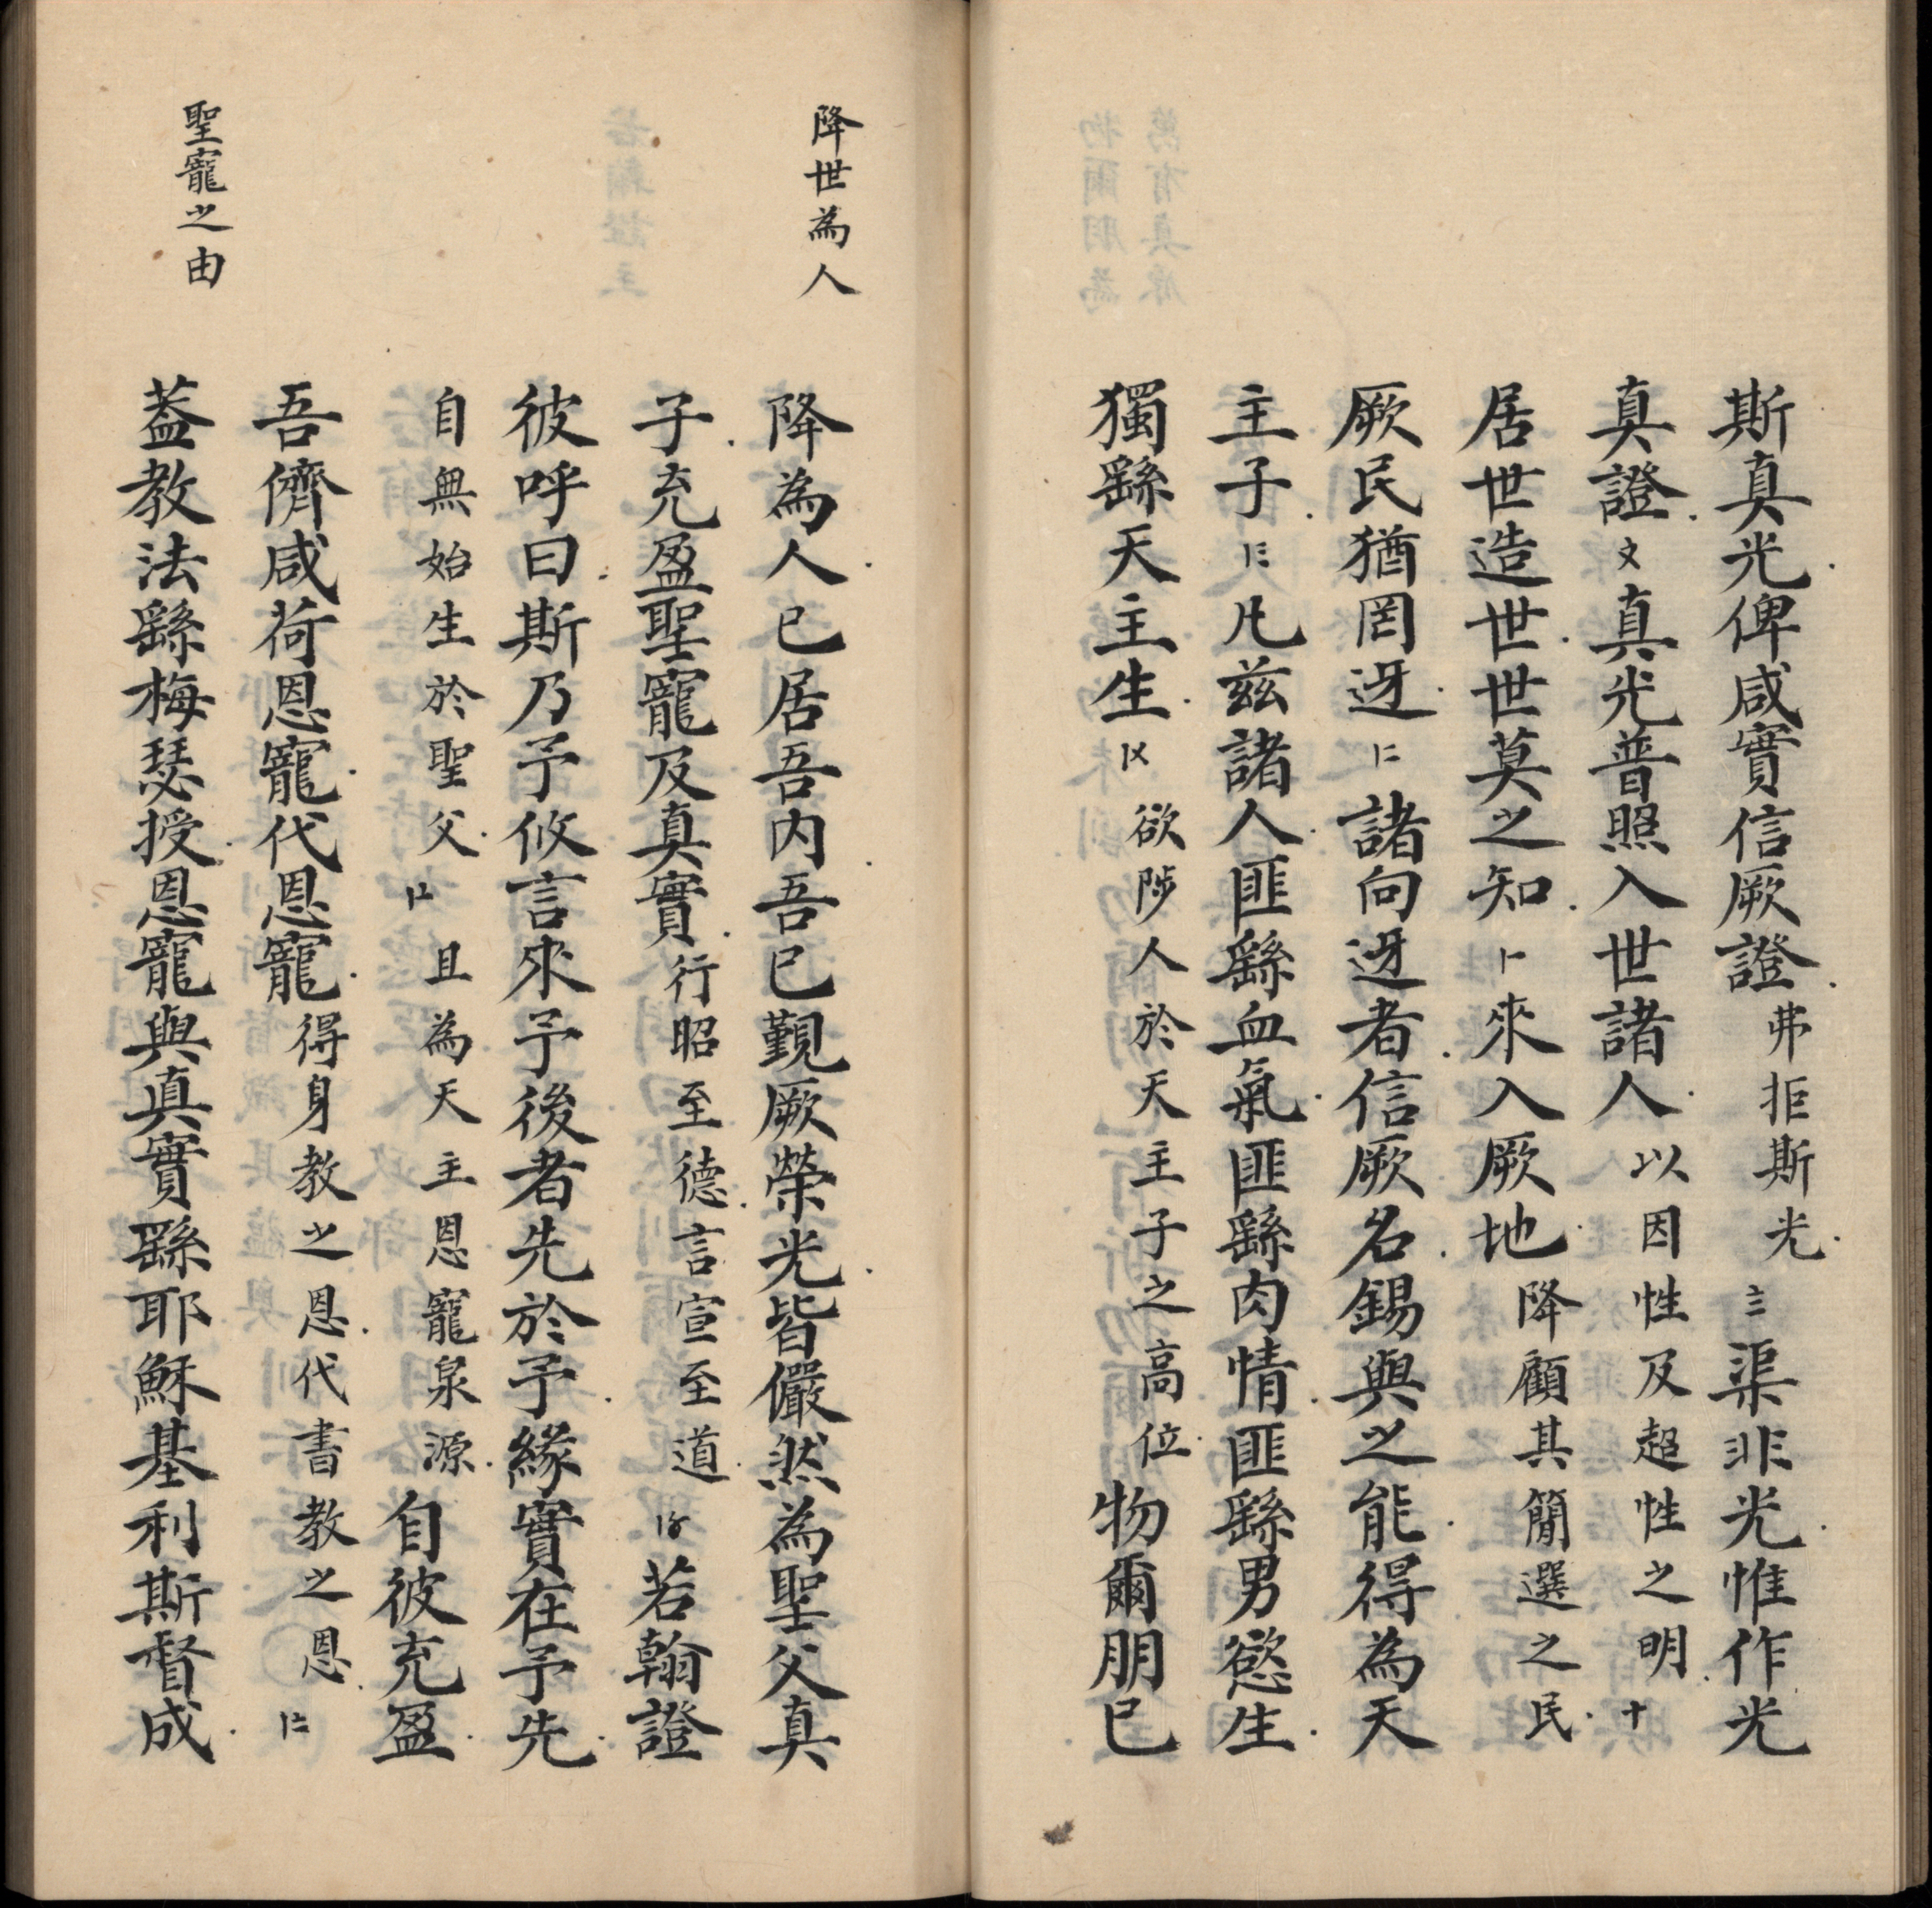 斯真光俾咸實信厥證弗拒斯光〨渠非光惟作光
真證〩真光普照入世諸人以因性及超性之明十
居世造世世莫之知〡一來入厥地降顧其簡選之民
厥民猶罔迓〡二諸向迓者信厥名錫與之能得為天
主子〡三凡茲諸人匪繇血氣匪繇肉情匪繇男慾生
獨繇天主生〡〤欲陟人於天主子之高位物爾朋已
降世為人
降為人已居吾內吾已覲厥榮光皆儼然為聖父真
子充盈聖寵及真實行昭至德言宣至道〡〥若翰證
彼呼曰斯乃予攸言來予後者先於予緣實在予先
自無始生於聖父〡〦且為天主恩寵泉源自彼充盈
吾儕咸荷恩寵代恩寵得身教之恩代書教之恩〡〧
聖寵之由
葢教法繇梅瑟授恩寵與真實繇耶穌基利斯督成